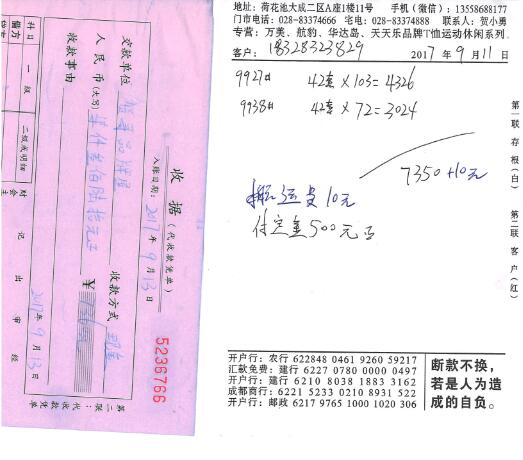 收据
(代收款凭单)
入账日期: 2017年9月13日
交款单位
品牌
收款方式 现金
人民币(大写) 柒仟叁佰陆拾元正
¥
收款事由
2017年9月13日
5236766
科目
一级
二级或明细
贷方
财会主
记
出
审
经
第二联 代收款凭单
地址:荷花池大成二区A座1楼11号 手机(微信):13558688177
门市电话:028-83374666 宅电:028-83374888 联系人:贺小勇
专营:万美、航豹、华达岛、天天乐品牌T恤运动休闲系列.
客户: 18328323829 2017年9月11日
9927# 42套×103=4326
9938# 42套×72=3024
7350+10元
搬运费10元
付定金500元正
第一联存根(白) 第二联客户(红)
开户行:农行 622848 0461 9260 59217
汇款免费:建行 6227 0780 0000 0497
开户行:建行 6210 8038 1883 3162
成都商行:6221 5233 0210 8931 522
开户行:邮政 6217 9765 1000 1020 306
断款不换,
若是人为造
成的自负。